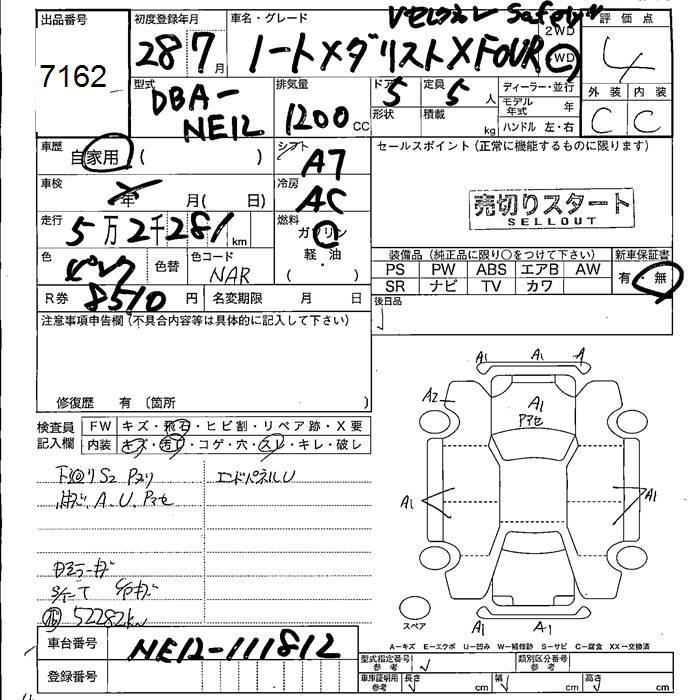 出品番号
7162
初度登録年月
28 7月
車名・グレード
Vセレクション Safety
ノートメダリストXFOUR
2WD
4WD
評価点
4
外装 内装
C C
型式
DBA-
NE12
排気量
1200CC
ドア
5
形状
定員
5人
積載 kg
ディーラー・並行
モデル年式 年
ハンドル 左・右
車歴
自家用 ( )
シフト
A7
セールスポイント (正常に機能するものに限ります)
売切りスタート
SELLOUT
車検
年 月( 日)
冷房
AC
走行
5万2千281km
燃料
ガソリン
軽・油
( )
色
色替
色コード
NAR
装備品 (純正品に限り○をつけて下さい)
PS PW ABS エアB AW
SR ナビ TV カワ
新車保証書
有・無
R券 8510円
名変期限 月 日
後日品
注意事項申告欄 (不具合内容等は具体的に記入して下さい)
修復歴 有 (箇所 )
検査員記入欄
FW キズ・飛石・ヒビ割・リペア跡・X要
内装 キズ・汚れ・コゲ・穴・スレ・キレ・破し
下回りS2
エンドパネルU
A.U.
52282km
A1 A1 A
A2
A1
A1 A1
A1 A1
スペア
A=キズ E=エクボ U=凹み W=補修跡 S=サビ C=腐食 XX=交換済
車台番号
NE12-111812
登録番号
型式指定番号参考
類別区分番号参考
車庫証明用参考
長さ cm
幅 cm
高さ cm